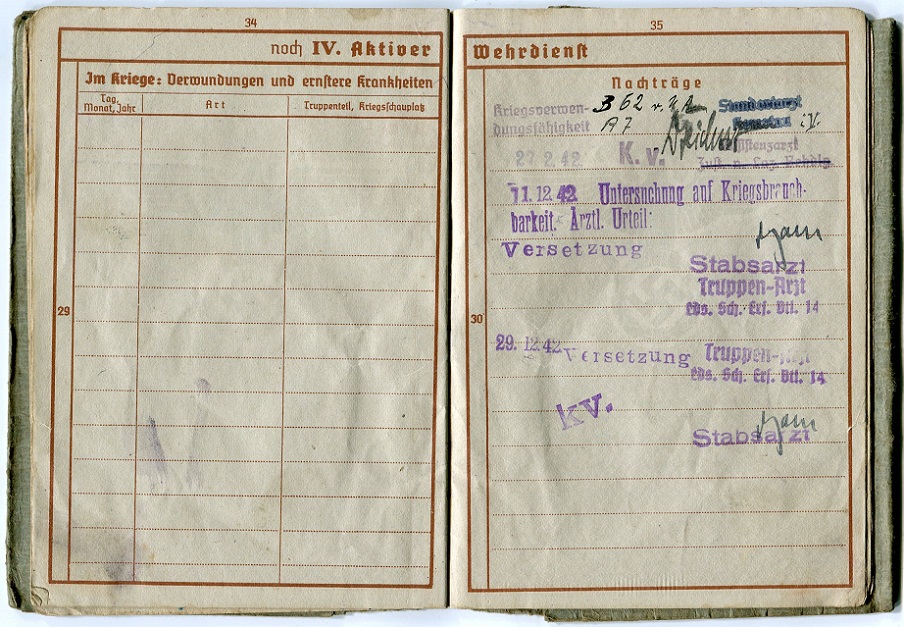 34
noch IV. Aktiver
Im Kriege: Verwundungen und ernstere Krankheiten
Tag, Monat, Jahr
Art
Truppenteil, Kriegsschauplatz
29
35
Wehrdienst
Nachträge
Kriegsverwen- B 62
dungsfähigkeit A 7 i.V.
27. 2. 42 K.v.
11. 12. 42 Untersuchung auf Kriegsbrauch-
barkeit. Ärztl. Urteil:
Versetzung
Stabsarzt
Truppen-Arzt
Lds. Sch. Ers. Btl. 14
30
29. 12. 42 Versetzung Truppen-Arzt
Lds. Sch. Ers. Btl. 14
kv.
Stabsarzt